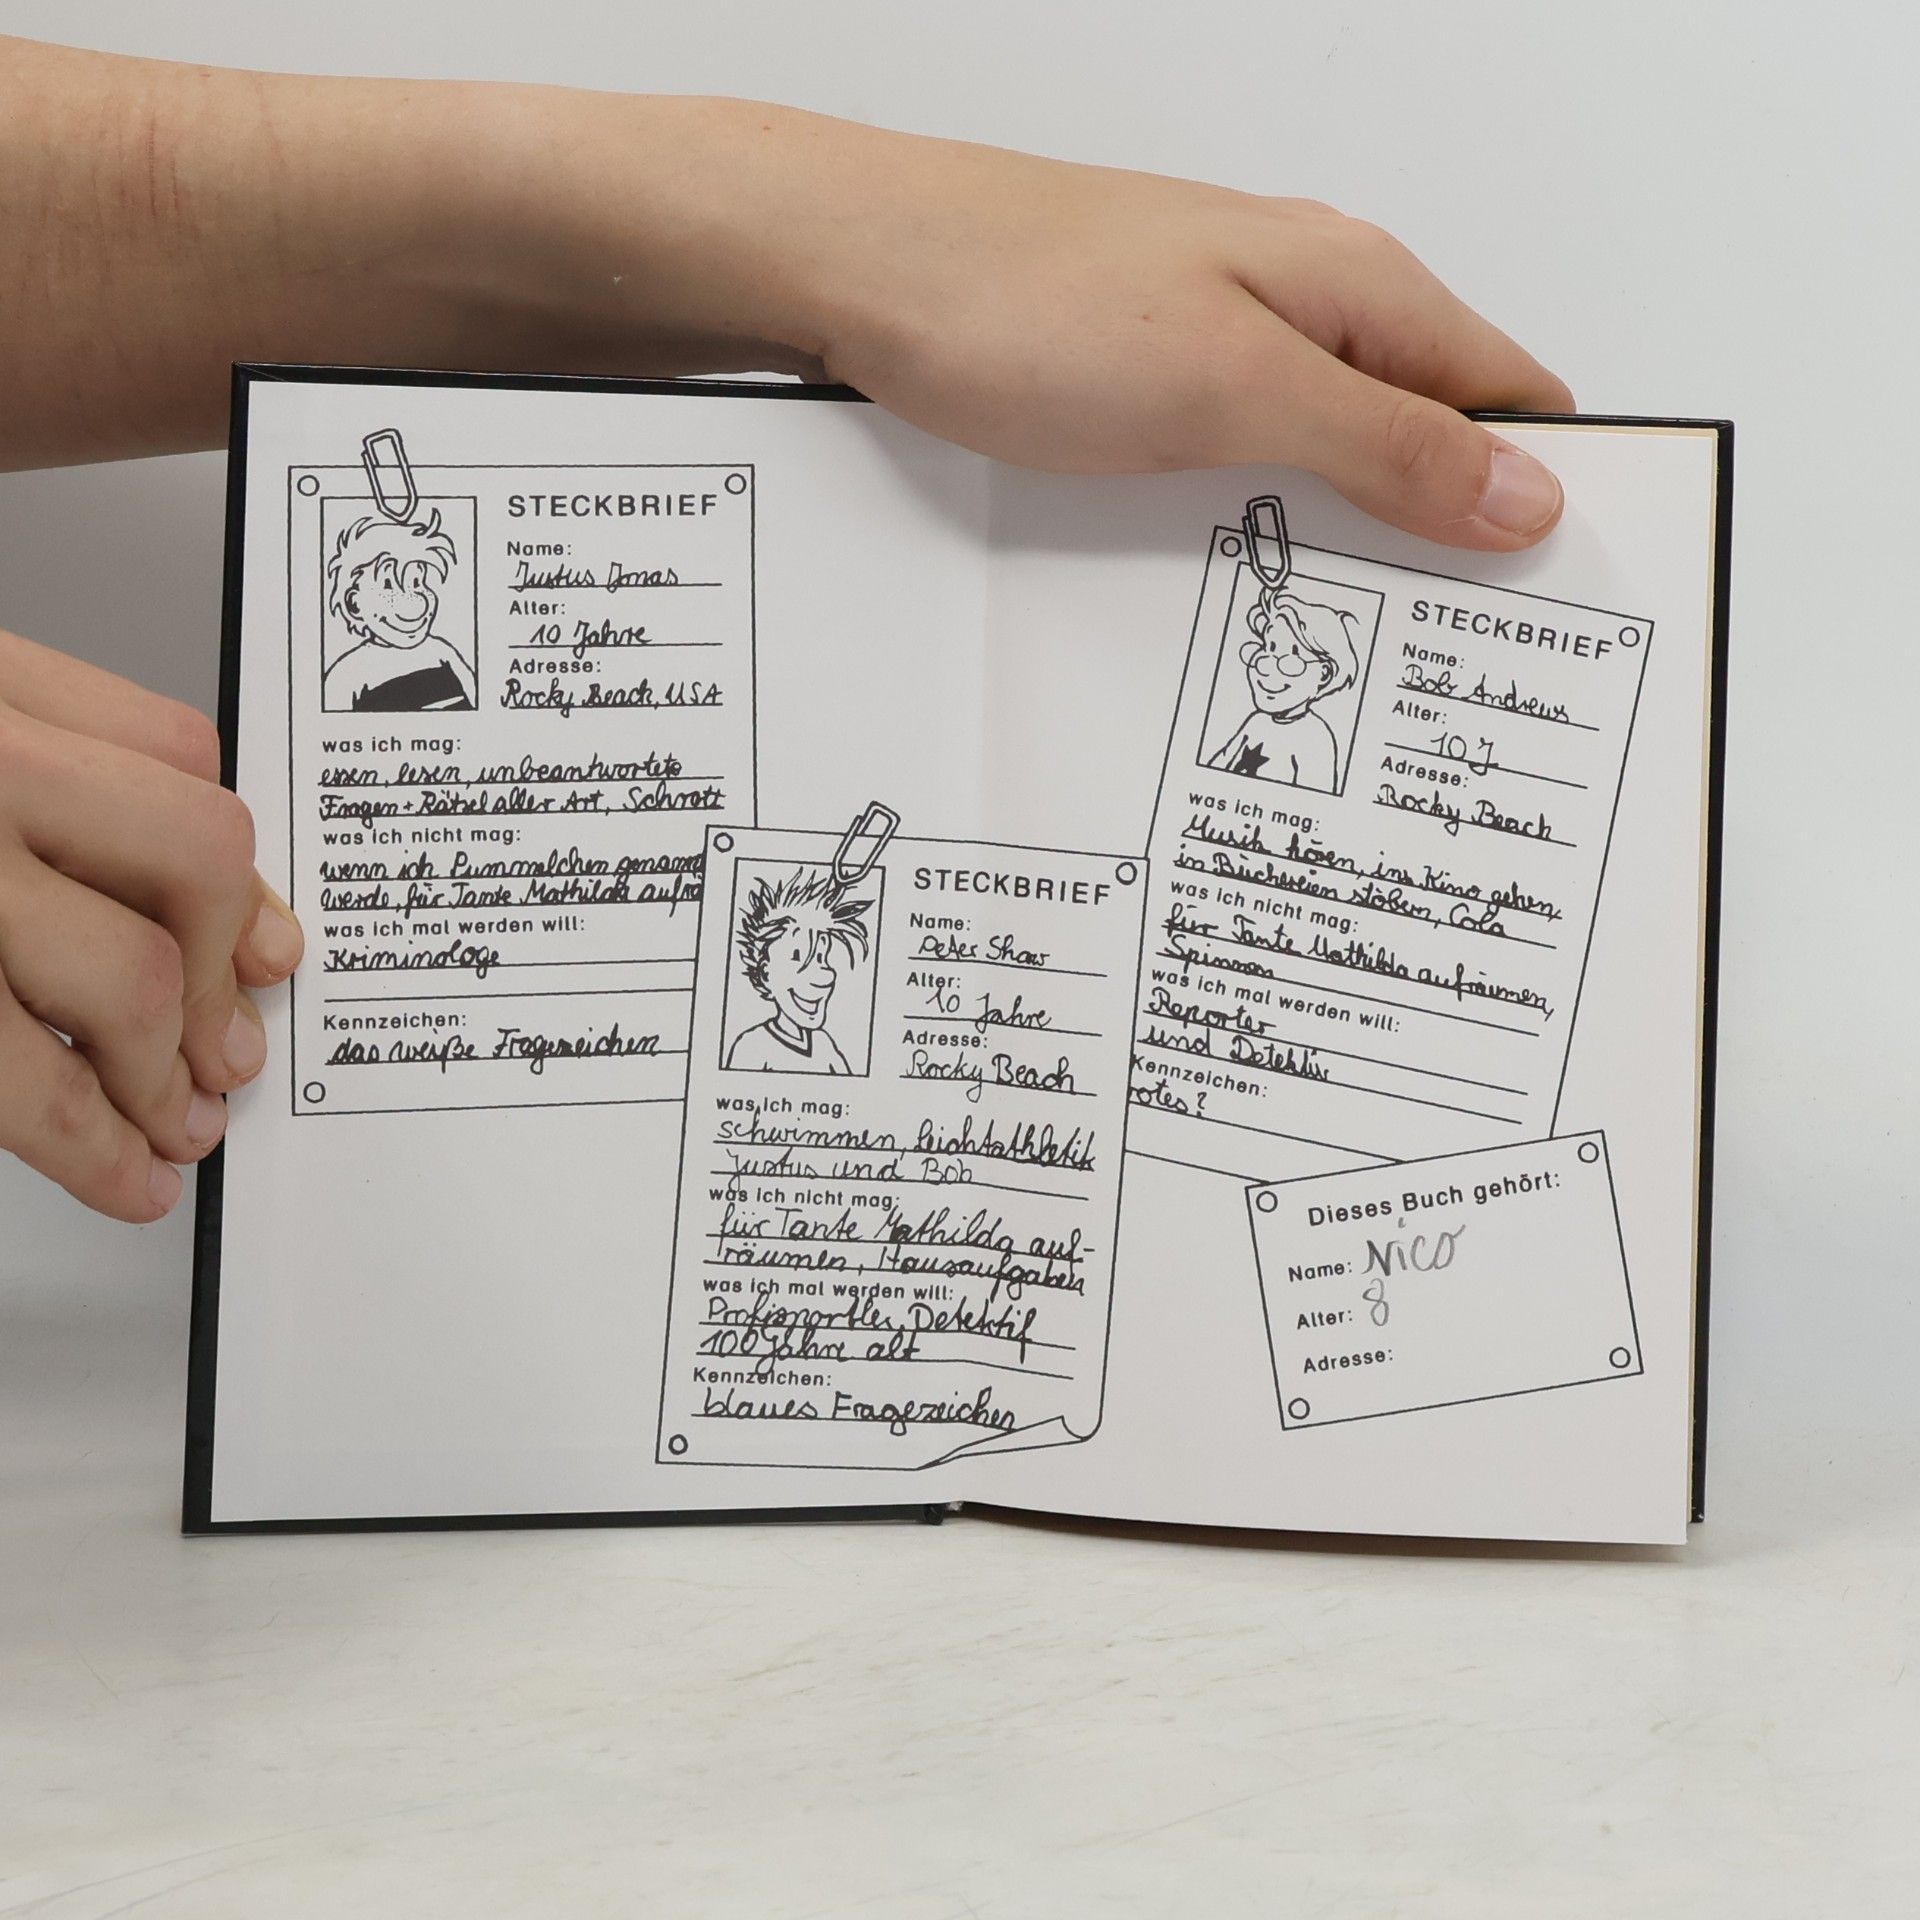 STECKBRIEF
Name:
Justus Jonas
Alter:
10 Jahre
Adresse:
Rocky Beach, USA
was ich mag:
essen, lesen, unbeantwortete
Fragen + Rätsel aller Art, Schrott
was ich nicht mag:
wenn ich Pummelchen genannt
werde, für Tante Mathilda aufrä
was ich mal werden will:
Kriminologe
Kennzeichen:
das weiße Fragezeichen
STECKBRIEF
Name:
Peter Shaw
Alter:
10 Jahre
Adresse:
Rocky Beach
was ich mag:
schwimmen, Leichtathletik
Justus und Bob
was ich nicht mag:
für Tante Mathilda auf-
räumen, Hausaufgaben
was ich mal werden will:
Profisportler, Detektif
100 Jahre alt
Kennzeichen:
blaues Fragezeichen
STECKBRIEF
Name:
Bob Andrews
Alter:
10 J.
Adresse:
Rocky Beach
was ich mag:
Musik hören, ins Kino gehen,
in Büchereien stöbern, Cola
was ich nicht mag:
für Tante Mathilda aufräumen,
Spinnen
was ich mal werden will:
Reporter
und Detektiv
Kennzeichen:
rotes ?
Dieses Buch gehört:
Name: NiCO
Alter: 8
Adresse: